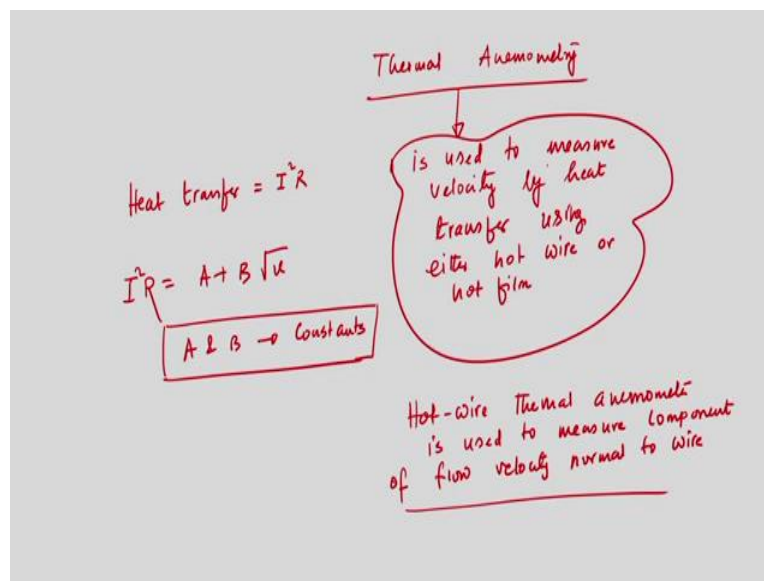 Thermal Anemometry
is used to measure
velocity by heat
transfer using
either hot wire or
hot film
Heat transfer = I²R
I²R = A + B √u
A & B → Constants
Hot-wire Thermal anemometer
is used to measure component
of flow velocity normal to wire